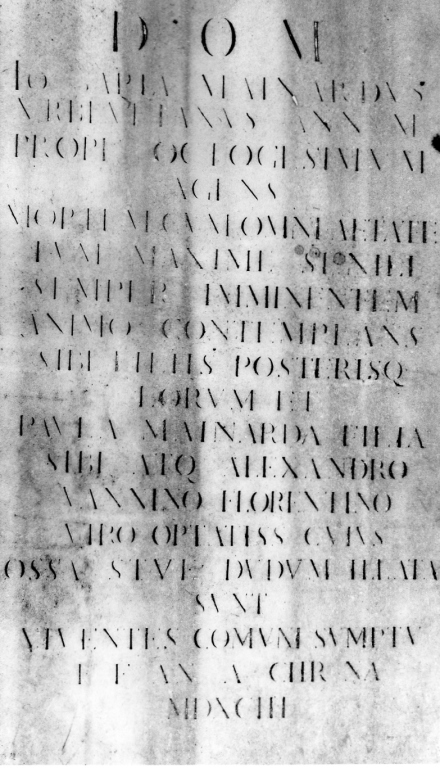 D O M
IO BAPTA MAINARDVS
VRBEVETANVS ANNVM
PROPE OCTOGESIMVM
AGENS
MORTEM CVM OMNI AETATE
TVM MAXIME SENILI
SEMPER IMMINENTEM
ANIMO CONTEMPLANS
SIBI FILIIS POSTERISQ
EORVM ET
PAVLA MAINARDA FILIA
SIBI ATQ ALEXANDRO
VANNINO FLORENTINO
VIRO OPTATISS CVIVS
OSSA SVNT DVDVM ILLATA
SVNT
VIVENTES COMVNI SVMPTV
F F AN A CHR NA
MDXCIII